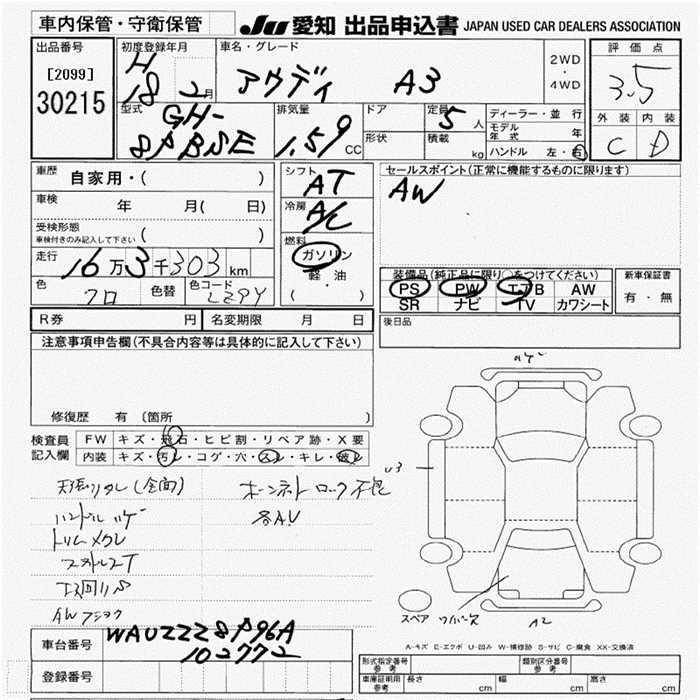 車内保管・守衛保管
JU 愛知 出品申込書 JAPAN USED CAR DEALERS ASSOCIATION
出品番号
[2099]
30215
初度登録年月
H
18 2月
車名・グレード
アウディ A3
2WD
・
4WD
評価点
3.5
外装 内装
C D
型式
GH-
8PBSE
排気量
1.59 CC
ドア
形状
定員 5 人
積載 kg
ディーラー・並行
モデル年式 年
ハンドル 左・右
車歴
自家用・( )
車検 年 月( 日)
受検形態
車検付きのみ記入して下さい ( )
走行
16万3千303km
色 クロ
色替
色コード LZ9Y
シフト
AT
冷房
A/C
燃料
ガソリン
軽油
( ・ )
セールスポイント(正常に機能するものに限ります)
AW
装備品(純正品に限り○をつけてください)
PS PW エアB AW
SR ナビ TV カワシート
新車保証書
有・無
R券 円
名変期限 月 日
後日品
注意事項申告欄(不具合内容等は具体的に記入して下さい)
修復歴 有 〔箇所 〕
検査員
記入欄
FW キズ・飛石・ヒビ割・リペア跡・X要
内装 キズ・汚レ・コゲ・穴・スレ・キレ・破レ
天張りタレ(全面)
ボーンネットロック不良
ハンドルハゲ
各AU
トリムメクレ
AW
ハゲ
U3
スペア
リハ゛ース
A2
A-キズ E-エクボ U-凹み W-補修跡 S-サビ C-腐食 XX-交換済
車台番号
WAUZZZ8P96A
102772
登録番号
形式指定番号
参考
類別区分番号
参考
車庫証明用
参考
長さ cm
幅 cm
高さ cm